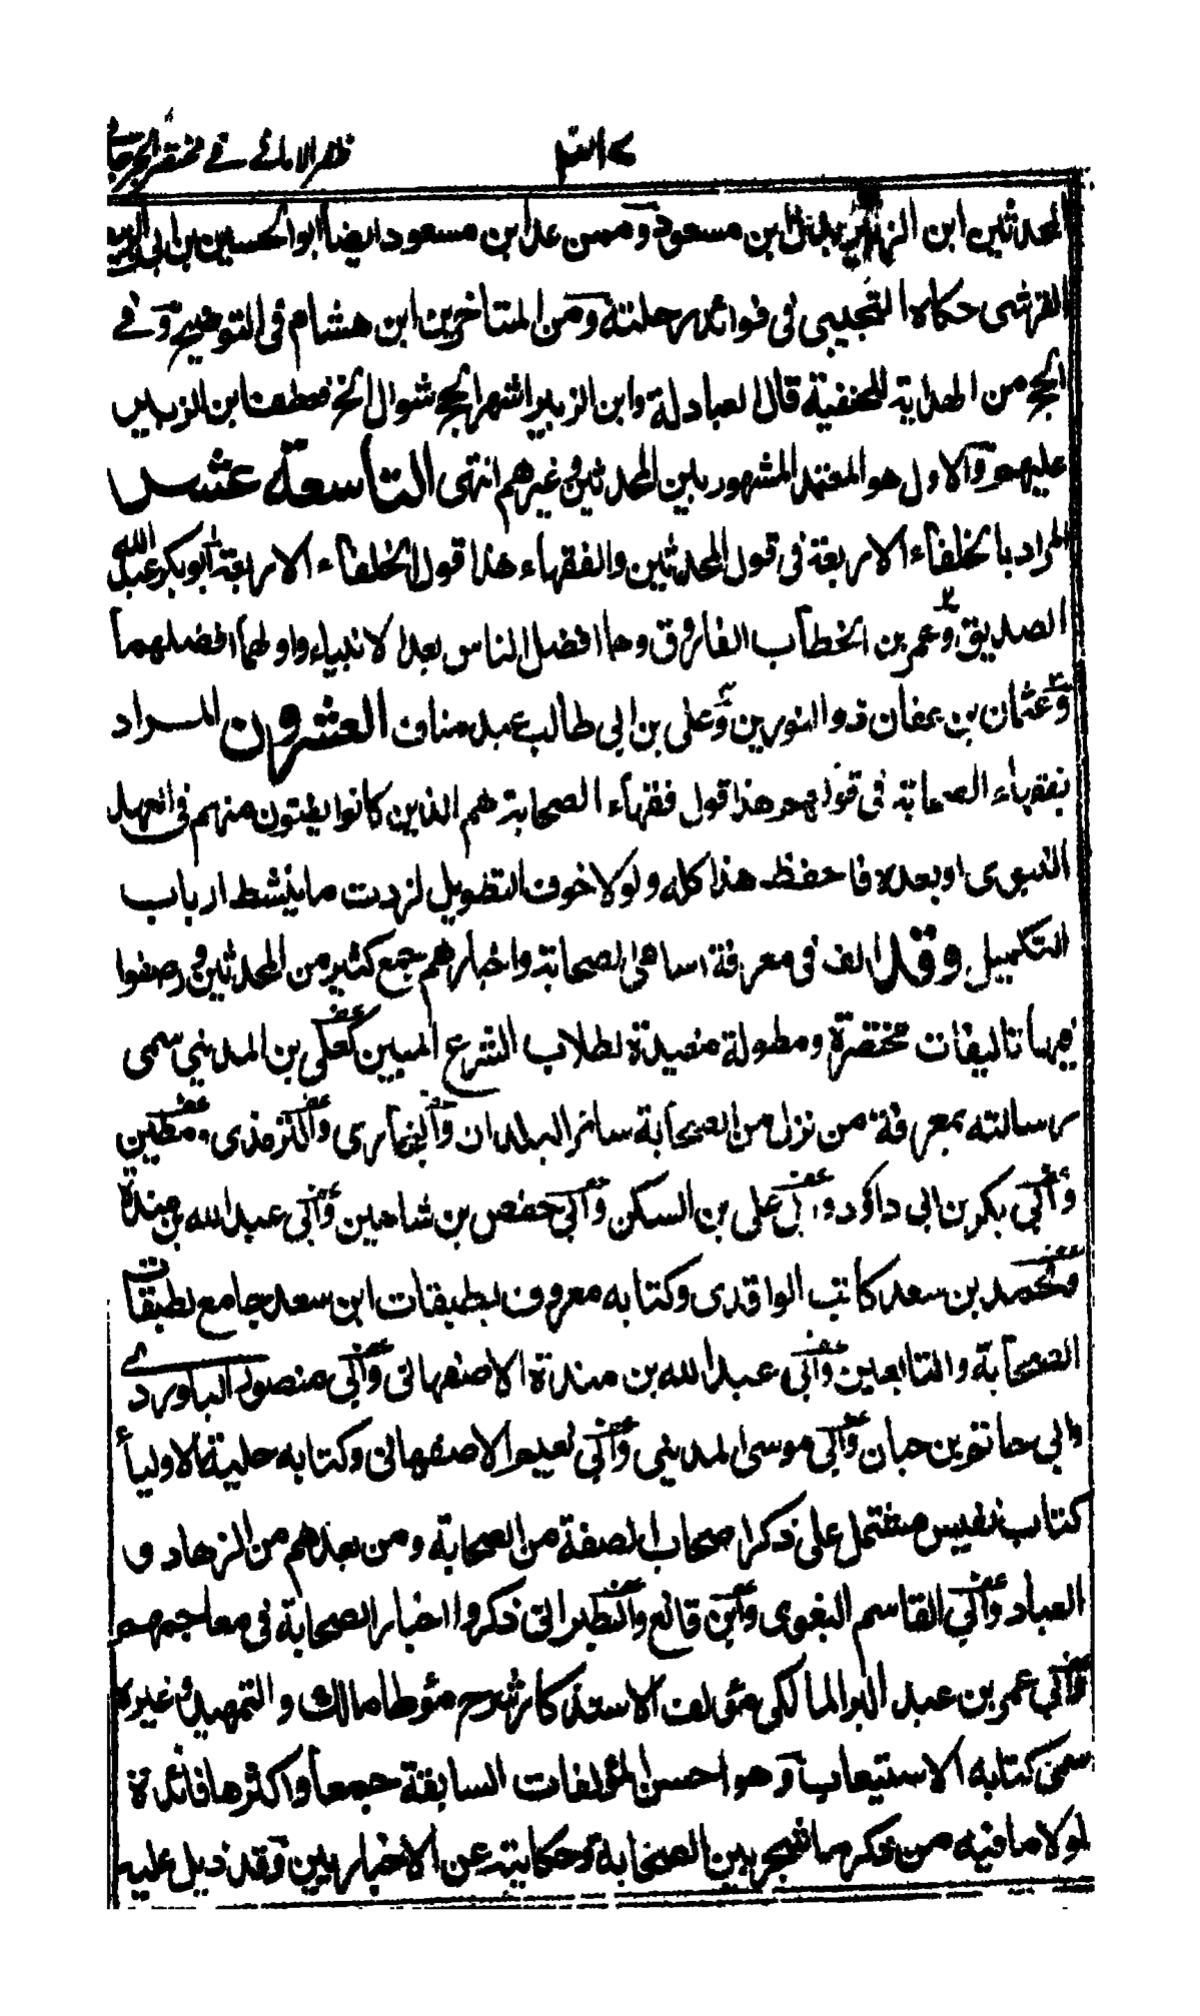 ظفر الامانے فے مختصر الجرجانے
المحدثين ابن الزبير بدل ابن مسعود وممن عد ابن مسعود ايضا ابو الحسين بن ابى الربيع
القرشى حكاه التجيبى فى فوائد رحلته ومن المتاخرين ابن هشام فى التوضيح وفے
الحج من الهداية للحنفية قال العبادلة وابن الزبير اشهر الحج شوال الخ فعطف ابن الزبير
عليهم والاول هو المعتمد المشهور بين المحدثين وغيرهم انتهى التاسعة عشر
المراد بالخلفاء الاربعة فى قول المحدثين والفقهاء هذا قول الخلفاء الاربعة ابو بكر عبد الله
الصديق وعمر بن الخطاب الفاروق وهما افضل الناس بعد الانبياء واولهما افضلهما
وعثمان بن عفان ذو النورين وعلى بن ابى طالب عبد مناف العشرون المراد
بفقهاء الصحابة فى قولهم هذا قول فقهاء الصحابة هم الذين كانوا يفتون منهم فى العهد
النبوى او بعده فاحفظ هذا كله ولولا خوف التطويل لزدت ما ينشط ارباب
التكميل وقد الف فى معرفة اسامى الصحابة واخبارهم جمع كثير من المحدثين وصنفوا
فيها تاليفات مختصرة ومطولة مفيدة لطلاب الشرع المبين كعلى بن المدينى سمى
رسالته بمعرفة من نزل من الصحابة سائر البلدان والبخارى والترمذى ومطين
وابى بكر بن ابى داؤد وابى على بن السكن وابى حفص بن شاهين وابى عبد الله بن مندة
ومحمد بن سعد كاتب الواقدى وكتابه معروف بطبقات ابن سعد جامع لطبقات
الصحابة والتابعين وابى عبد الله بن مندة الاصفهانى وابى منصور الباوردى
وابى حاتم بن حبان وابى موسى المدينى وابى نعيم الاصفهانى وكتابه حلية الاولياء
كتاب نفيس مشتمل على ذكر اصحاب الصفة من الصحابة ومن بعدهم من الزهاد و
العباد وابى القاسم البغوى وابن قانع والطبرانى ذكروا اخبار الصحابة فى معاجمهم
وابى عمر بن عبد البر المالكى مؤلف الاستذكار شرح مؤطا مالك والتمهيد وغيره
سمى كتابه الاستيعاب وهو احسن المؤلفات السابقة جمعا واكثرها فائدة
لولا ما فيه من ذكر ما شجر بين الصحابة وحكايته عن الاخباريين وقد ذيل عليه